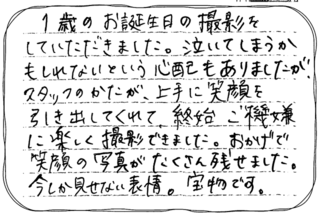 1歳のお誕生日の撮影を
していただきました。泣いてしまうか
もしれないという心配もありましたが、
スタッフのかたが、上手に笑顔を
引き出してくれて、終始ご機嫌
に楽しく撮影できました。おかげで
笑顔の写真がたくさん残せました。
今しか見せない表情。宝物です。